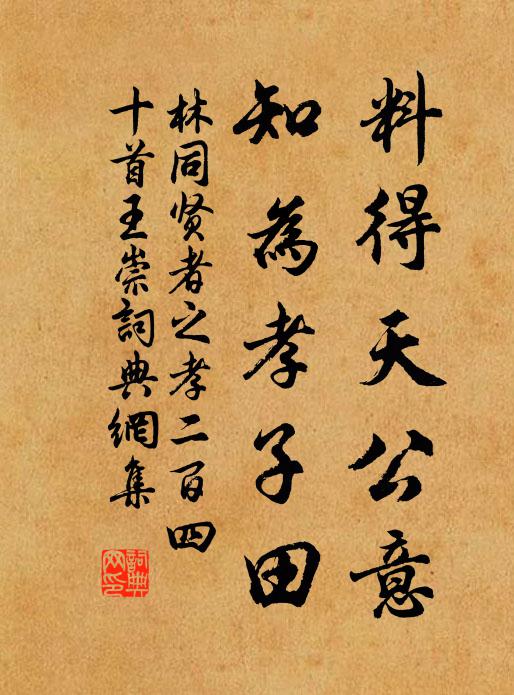 料得天公意
知為孝子田
林同贤者之孝二百四
十首王崇詞典網集
詞典网印